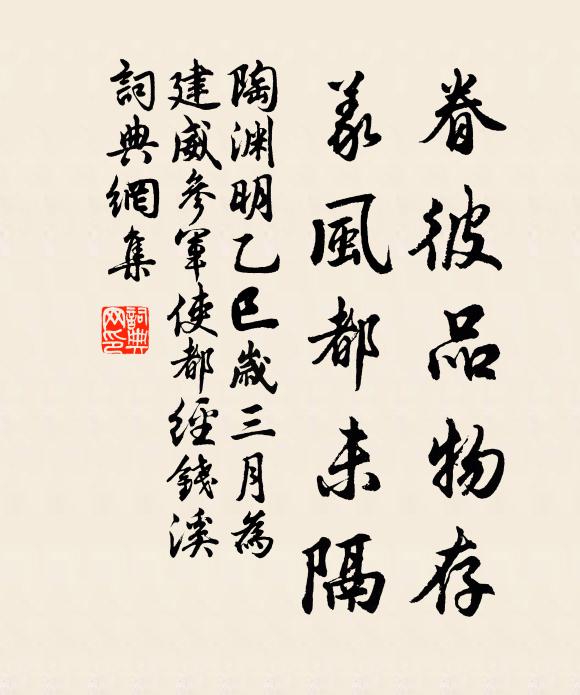 眷彼品物存
義風都未隔
陶渊明乙巳歲三月為
建威參軍使都經錢溪
詞典網集
詞典网印